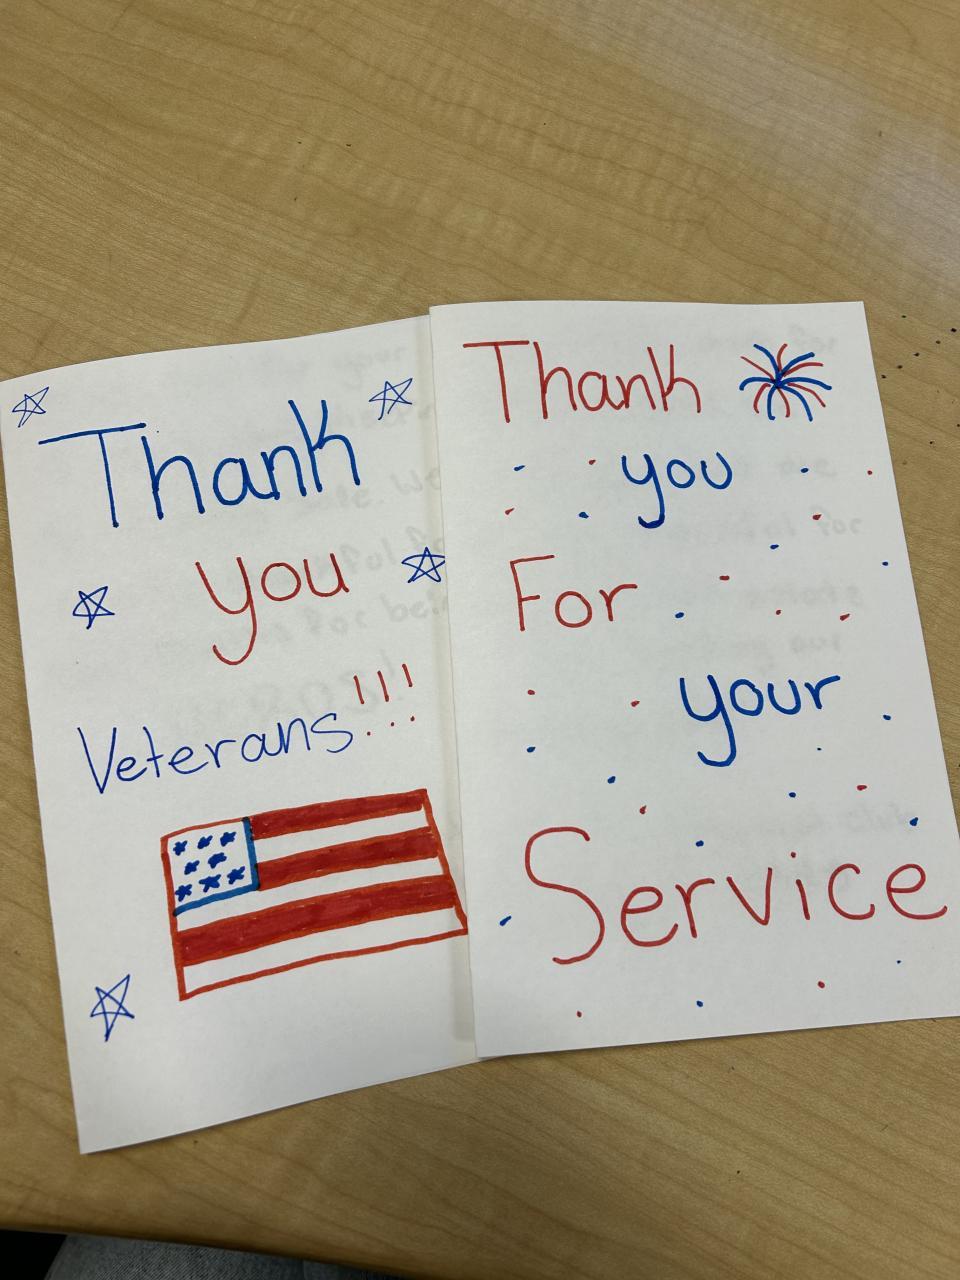 Thank
you
Veterans!!!
Thank
you
For
your
Service